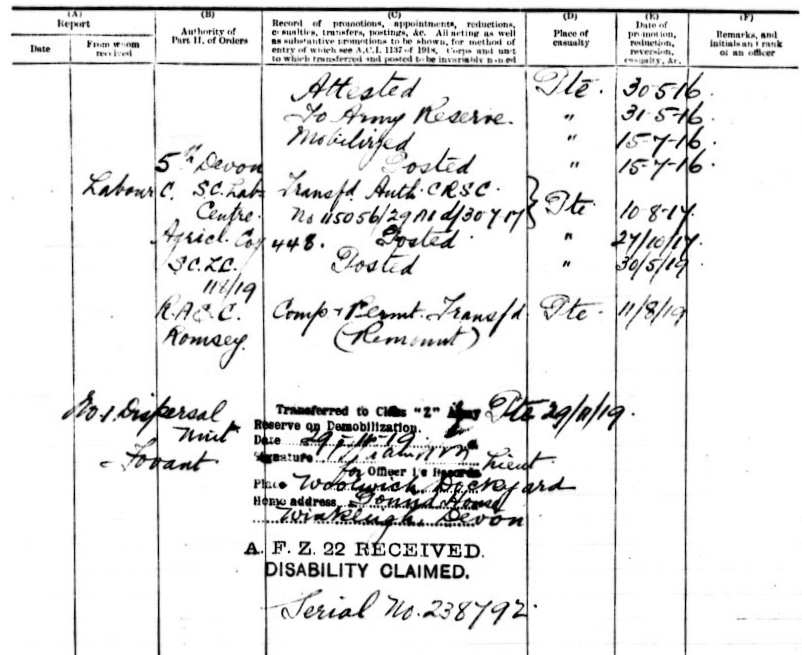 (A)
Report
Date
From whom received
(B)
Authority of
Part II. of Orders
(C)
Record of promotions, appointments, reductions,
casualties, transfers, postings, &c. All acting as well
as substantive promotions to be shown, for method of
entry of which see A.C.I. 1137 of 1918. Corps and unit
to which transferred and posted to be invariably named
(D)
Place of
casualty
(E)
Date of
promotion,
reduction,
reversion,
casualty, &c.
(F)
Remarks, and
initials and rank
of an officer
Attested Pte. 30-5-16
To Army Reserve. " 31-5-16
Mobilized " 15-7-16
5th Devon Posted " 15-7-16
Labour C. S.C. Lab. Transfd. Auth. C.R.S.C.
Centre. No 115056/29 30-7-17 Pte 10-8-17
Agricl. Coy 448. Posted " 27/10/17
S.C.L.C. Posted " 30/5/19
R.A.S.C. Comp & Permt. Transfd. Pte. 11/8/19
Romsey. (Remount)
No.1 Dispersal Transferred to Class "Z" Army Pte 29/11/19.
Unit Reserve on Demobilization.
Date 29-11-19
Fovant Signature Lieut
for Officer i/c Records
Place Woolwich Dockyard
Home address House
Winkleigh, Devon
A. F. Z. 22 RECEIVED.
DISABILITY CLAIMED.
Serial No. 238792.